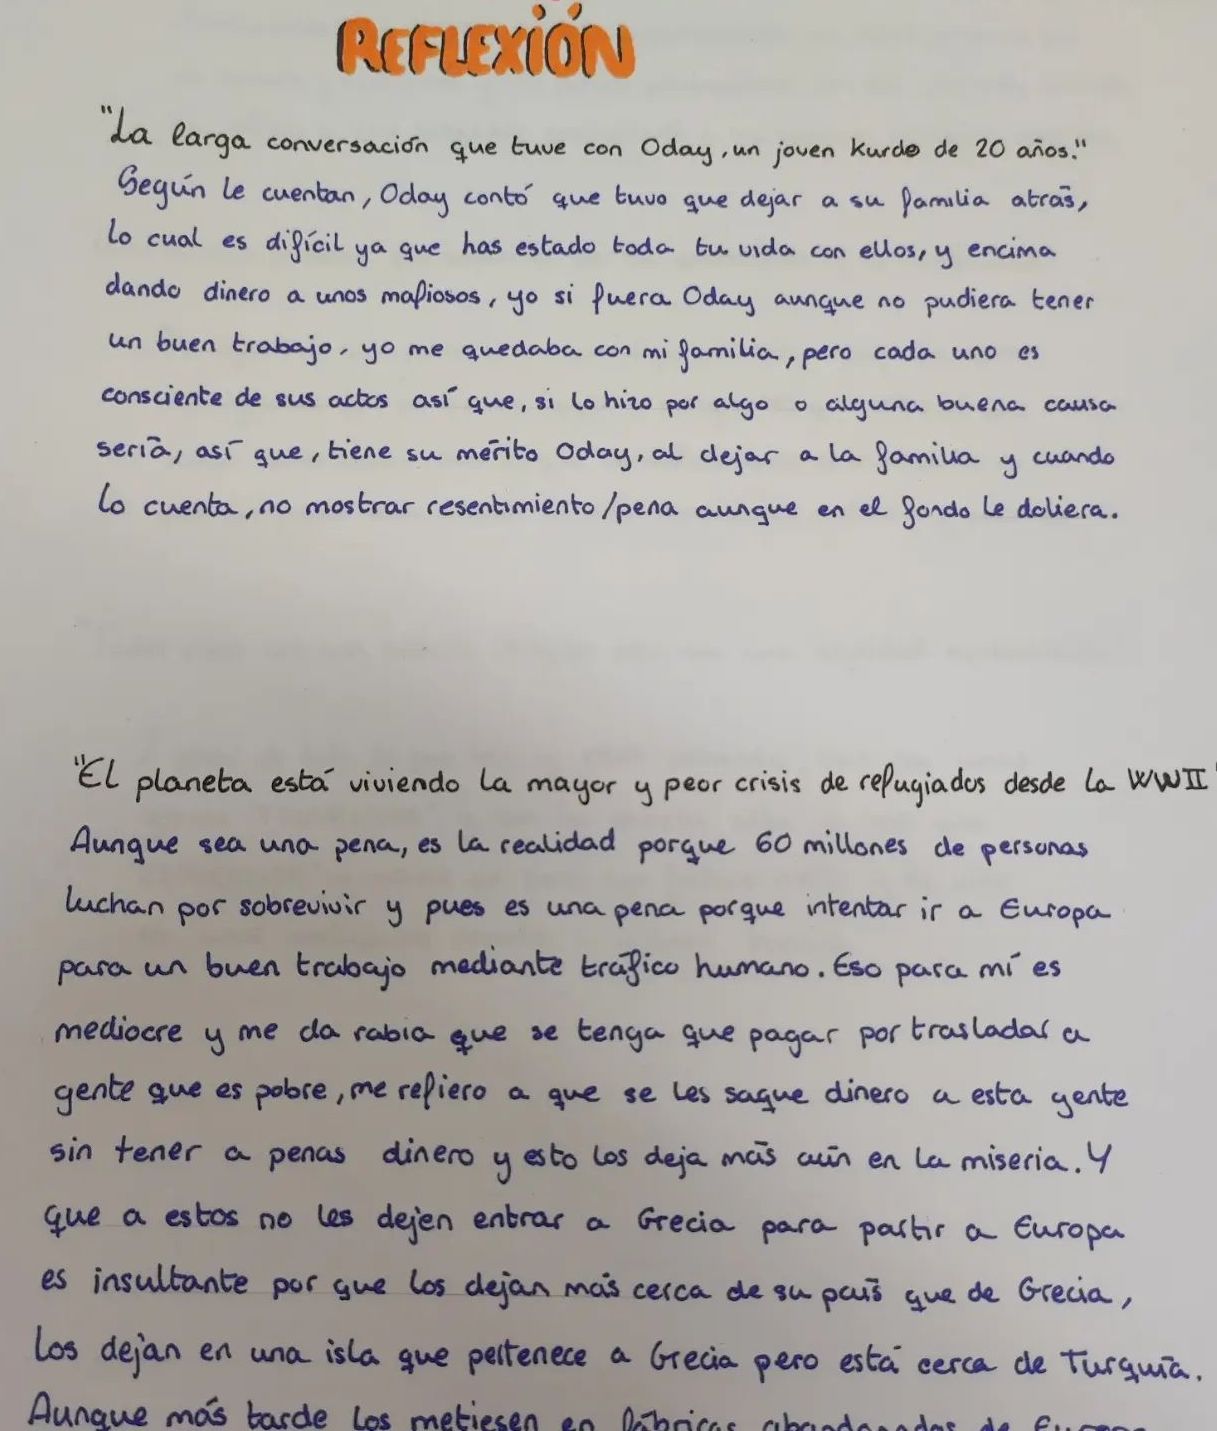 REFLEXIÓN
"La larga conversación que tuve con Oday, un joven kurdo de 20 años."
Según le cuentan, Oday contó que tuvo que dejar a su familia atrás,
lo cual es difícil ya que has estado toda tu vida con ellos, y encima
dando dinero a unos mafiosos, yo si fuera Oday aunque no pudiera tener
un buen trabajo, yo me quedaba con mi familia, pero cada uno es
consciente de sus actos así que, si lo hizo por algo o alguna buena causa
sería, así que, tiene su mérito Oday, al dejar a la familia y cuando
lo cuenta, no mostrar resentimiento/pena aunque en el fondo le doliera.
"El planeta está viviendo la mayor y peor crisis de refugiados desde la WWII"
Aunque sea una pena, es la realidad porque 60 millones de personas
luchan por sobrevivir y pues es una pena porque intentar ir a Europa
para un buen trabajo mediante tráfico humano. Eso para mí es
mediocre y me da rabia que se tenga que pagar por trasladar a
gente que es pobre, me refiero a que se les saque dinero a esta gente
sin tener a penas dinero y esto los deja más aún en la miseria. Y
que a estos no les dejen entrar a Grecia para partir a Europa
es insultante por que los dejan más cerca de su país que de Grecia,
los dejan en una isla que pertenece a Grecia pero está cerca de Turquía.
Aunque más tarde los metiesen en fábricas abandonadas de Europa